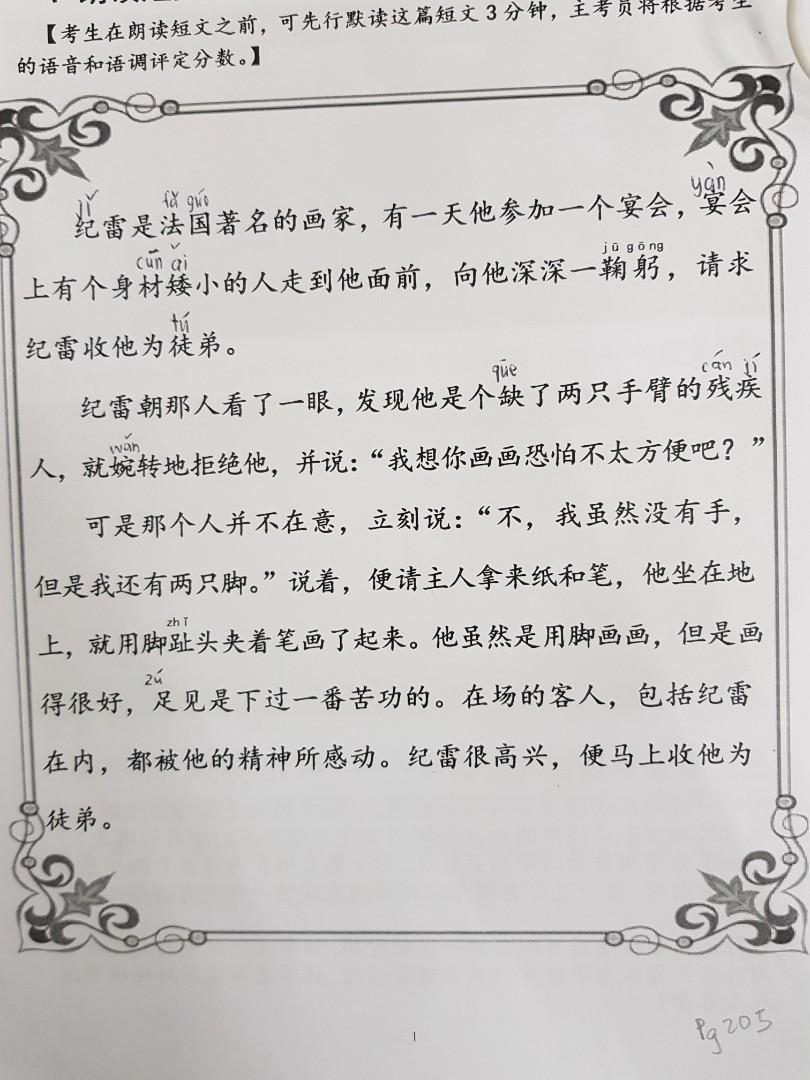 【考生在朗读短文之前，可先行默读这篇短文3分钟，主考员将根据考生
的语音和语调评定分数。】
jǐ fǎ guó yàn
纪雷是法国著名的画家，有一天他参加一个宴会，宴会
cūn ǎi jū gōng
上有个身材矮小的人走到他面前，向他深深一鞠躬，请求
tú
纪雷收他为徒弟。
qüe cán jí
纪雷朝那人看了一眼，发现他是个缺了两只手臂的残疾
wǎn
人，就婉转地拒绝他，并说：“我想你画画恐怕不太方便吧？”
可是那个人并不在意，立刻说：“不，我虽然没有手，
但是我还有两只脚。”说着，便请主人拿来纸和笔，他坐在地
zhǐ
上，就用脚趾头夹着笔画了起来。他虽然是用脚画画，但是画
zú
得很好，足见是下过一番苦功的。在场的客人，包括纪雷
在内，都被他的精神所感动。纪雷很高兴，便马上收他为
徒弟。
1
Pg 205